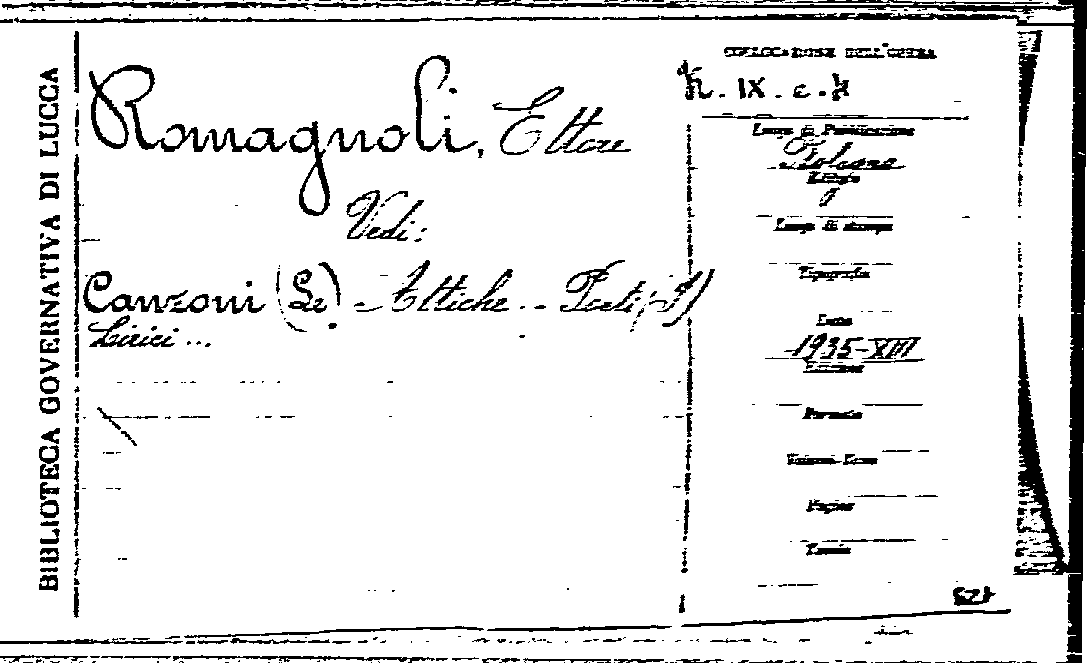 BIBLIOTECA GOVERNATIVA DI LUCCA
COLLOCAZIONE DELL'OPERA
IX. c.
Romagnoli, Ettore
Vedi:
Canzoni (Le) - Attiche - Poeti (I)
Lirici ...
Luogo di Pubblicazione
Bologna
Editore
Luogo di stampa
Tipografia
Data
1935-XIII
Edizione
Formato
Volumi
Pagine